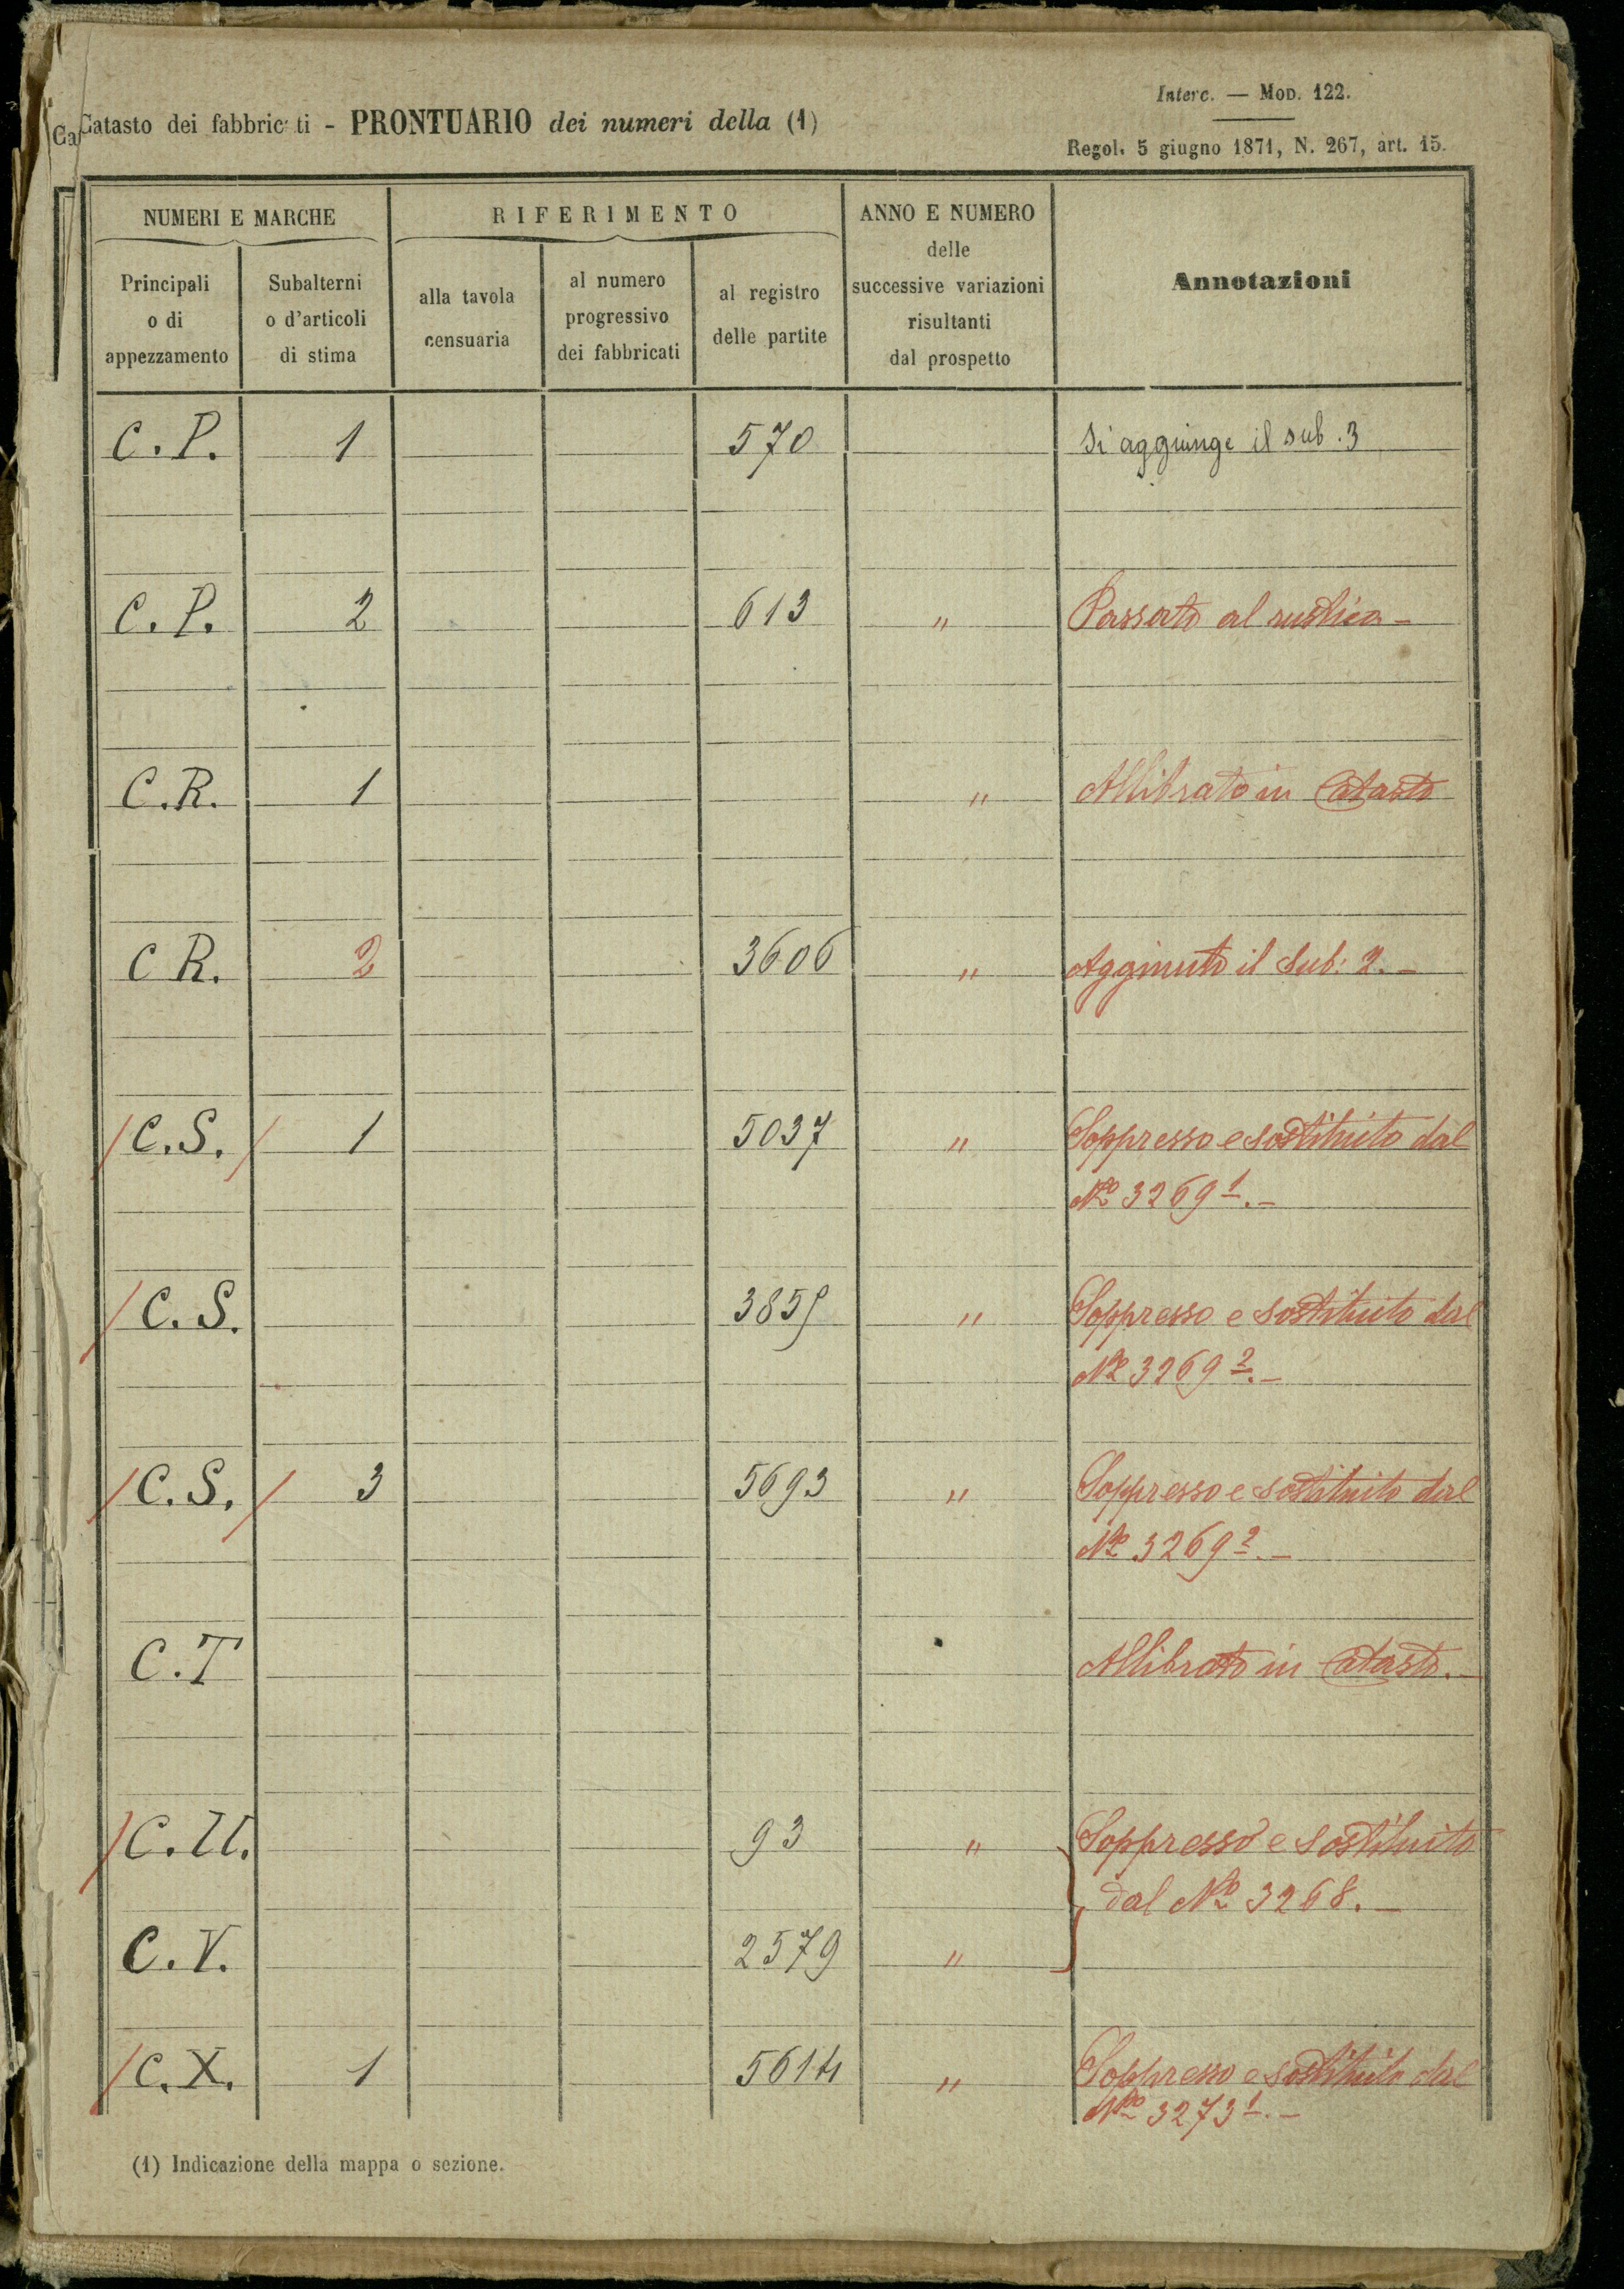 Interc. — Mod. 122.
Catasto dei fabbricati - PRONTUARIO dei numeri della (1)
Regol. 5 giugno 1871, N. 267, art. 15.
NUMERI E MARCHE
RIFERIMENTO
ANNO E NUMERO
delle
successive variazioni
risultanti
dal prospetto
Annotazioni
Principali
o di
appezzamento
Subalterni
o d'articoli
di stima
alla tavola
censuaria
al numero
progressivo
dei fabbricati
al registro
delle partite
C.P. 1 570 Si aggiunge il sub. 3
C.P. 2 613 " Passato al rustico –
C.R. 1 " Allibrato in Catasto
C R. 2 3606 " Aggiunto il Sub: 2. –
/ C.S. / 1 5037 " Soppresso e sostituito dal
No 3269 1. –
/ C.S. 3859 " Soppresso e sostituito dal
No 3269 2. –
/ C.S. / 3 5693 " Soppresso e sostituito dal
No 3269 2. –
C.T Allibrato in Catasto. –
/ C.U. 93 " Soppresso e sostituito
dal No 3268. –
C.V. 2579 "
/ C.X. 1 5614 " Soppresso e sostituito dal
No 3273 1. –
(1) Indicazione della mappa o sezione.